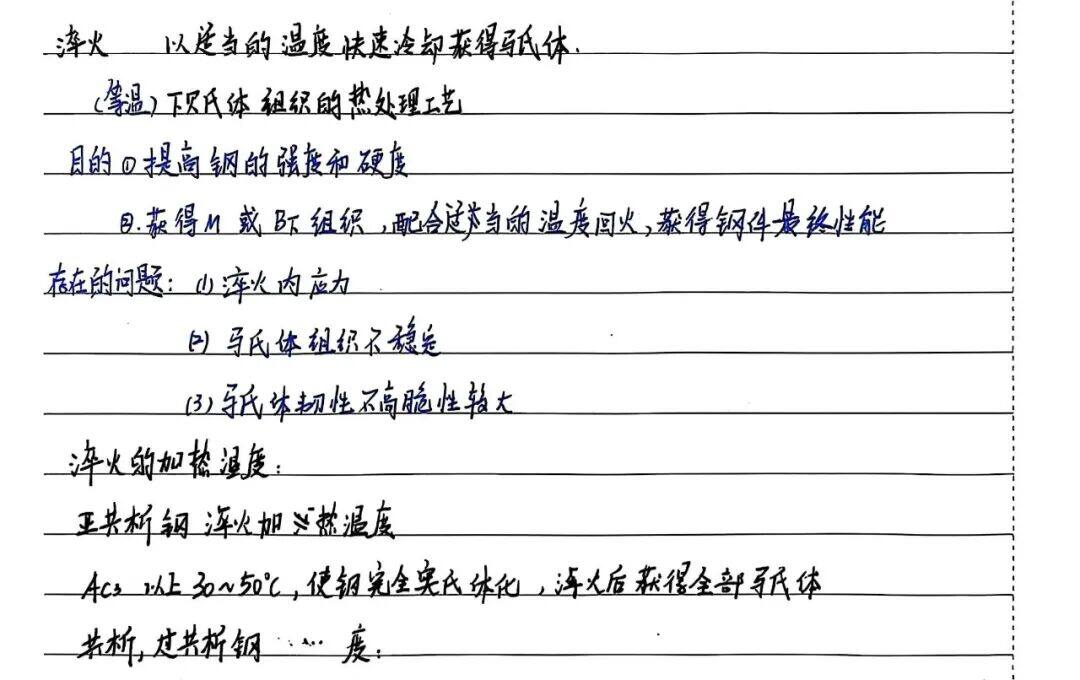 淬火 以适当的温度快速冷却获得马氏体.
(等温)下贝氏体组织的热处理工艺
目的①提高钢的强度和硬度
②.获得M或B下组织,配合适当的温度回火,获得钢件最终性能
存在的问题:(1)淬火内应力
(2)马氏体组织不稳定
(3)马氏体韧性不高脆性较大
淬火的加热温度:
亚共析钢淬火加热温度
Ac3以上30~50℃,使钢完全奥氏体化,淬火后获得全部马氏体
共析,过共析钢……度: